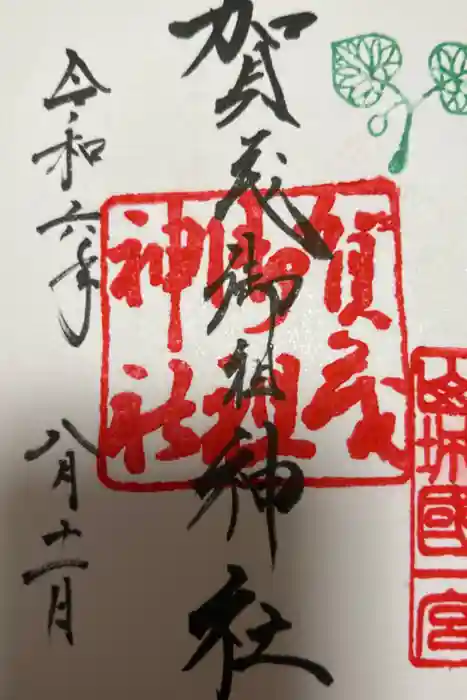 山城國一宮
賀茂御祖神社
賀茂
御祖
神社
令和六年
八月十一日